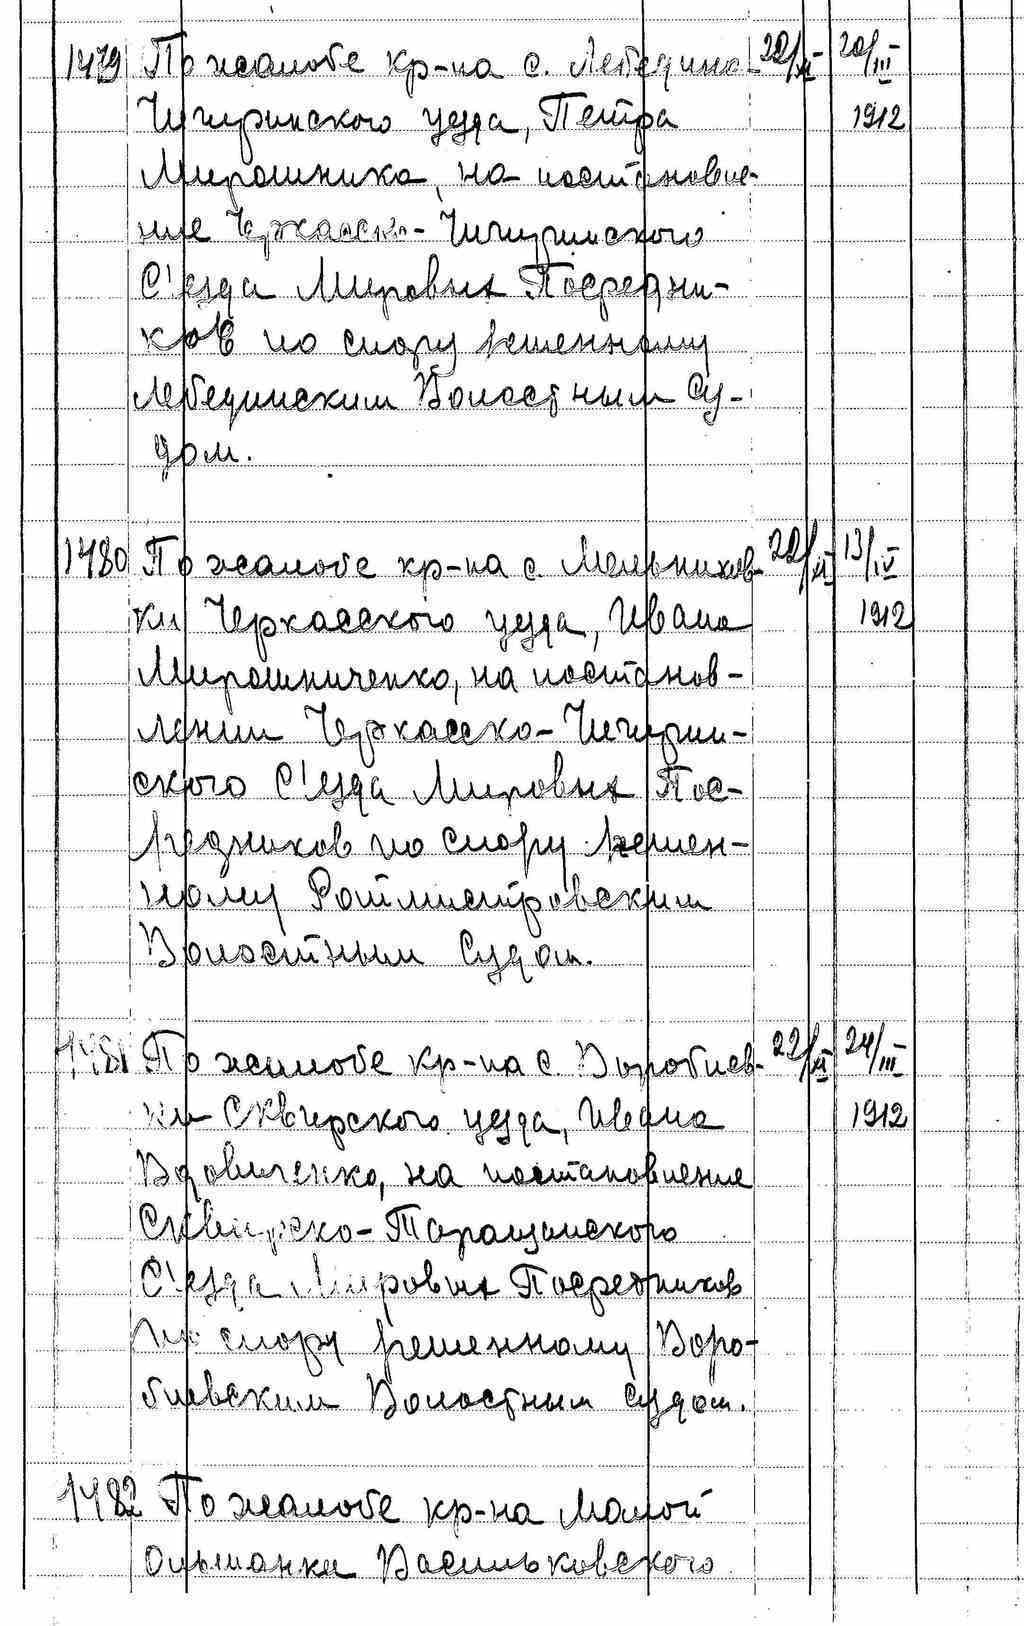 1479 По жалобе кр-на с. Лебедина 22/XI 20/III
Чигиринского уезда, Петра 1912
Мирошника, на постановле-
ние Черкасско-Чигиринского
С'езда Мировых Посредни-
ков по спору решенному
Лебединским Волостным Су-
дом.
1480 По жалобе кр-на с. Мельников- 22/XI 13/IV
ки Черкасского уезда, Ивана 1912
Мирошниченко, на постанов-
лении Черкасско-Чигирин-
ского С'езда Мировых Пос-
редников по спору решен-
ному Ротмистровским
Волостным Судом.
1481 По жалобе кр-на с. Воробиев- 22/XI 24/III
ки Сквирского уезда, Ивана 1912
Вдовиченко, на постановление
Сквирско-Таращанского
С'езда Мировых Посредников
по спору решенному Воро-
биевским Волостным Судом.
1482 По жалобе кр-на Малой
Ольшанки Васильковского